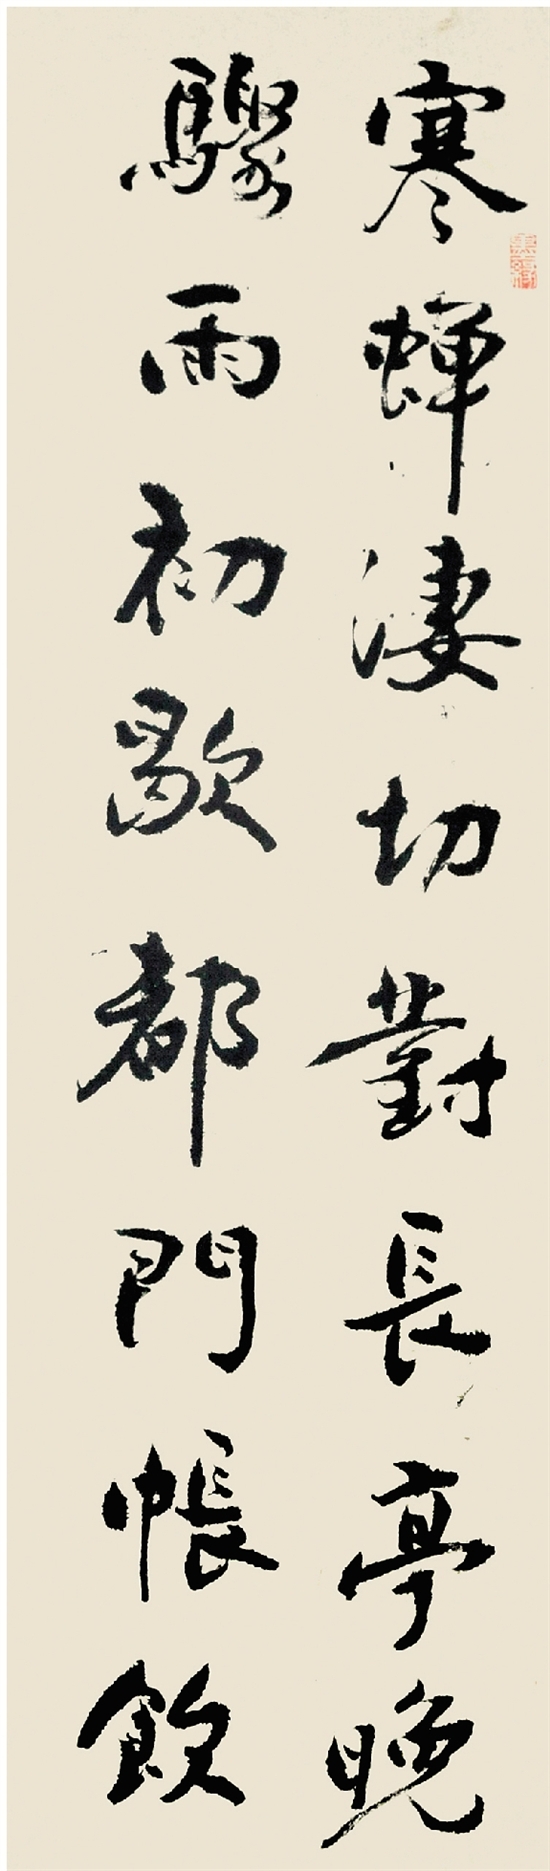 寒蟬淒切對長亭晚
驟雨初歇都門帳飲